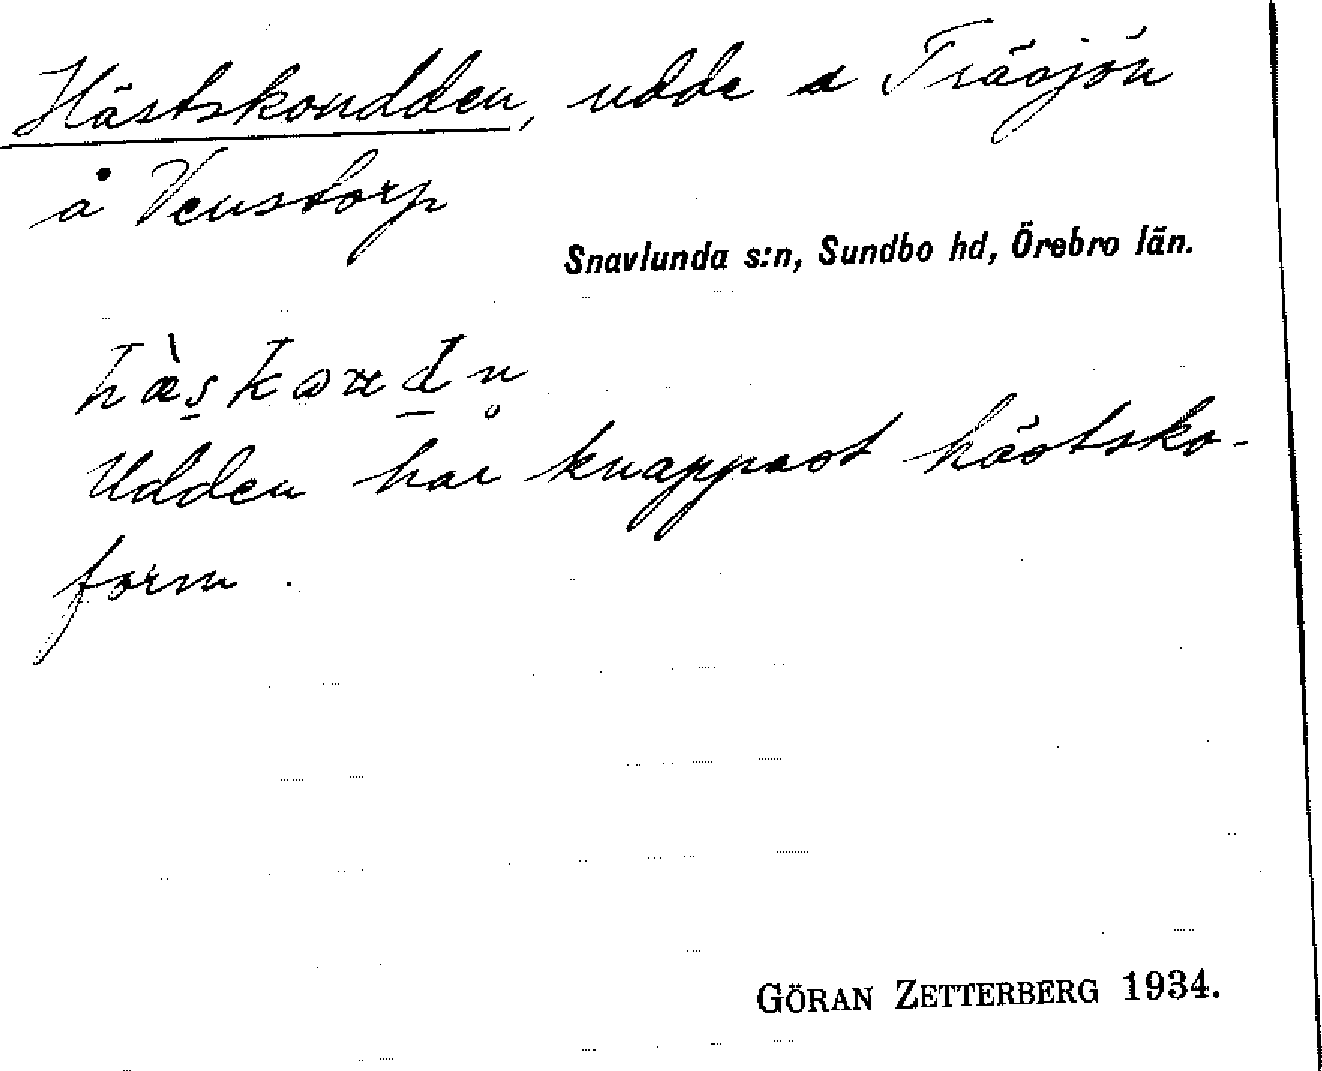 Hästskoudden, udde a Träsjön
å Venstorp
Snavlunda s:n, Sundbo hd, Örebro län.
Udden har knappast hästsko-
form.
GÖRAN ZETTERBERG 1934.